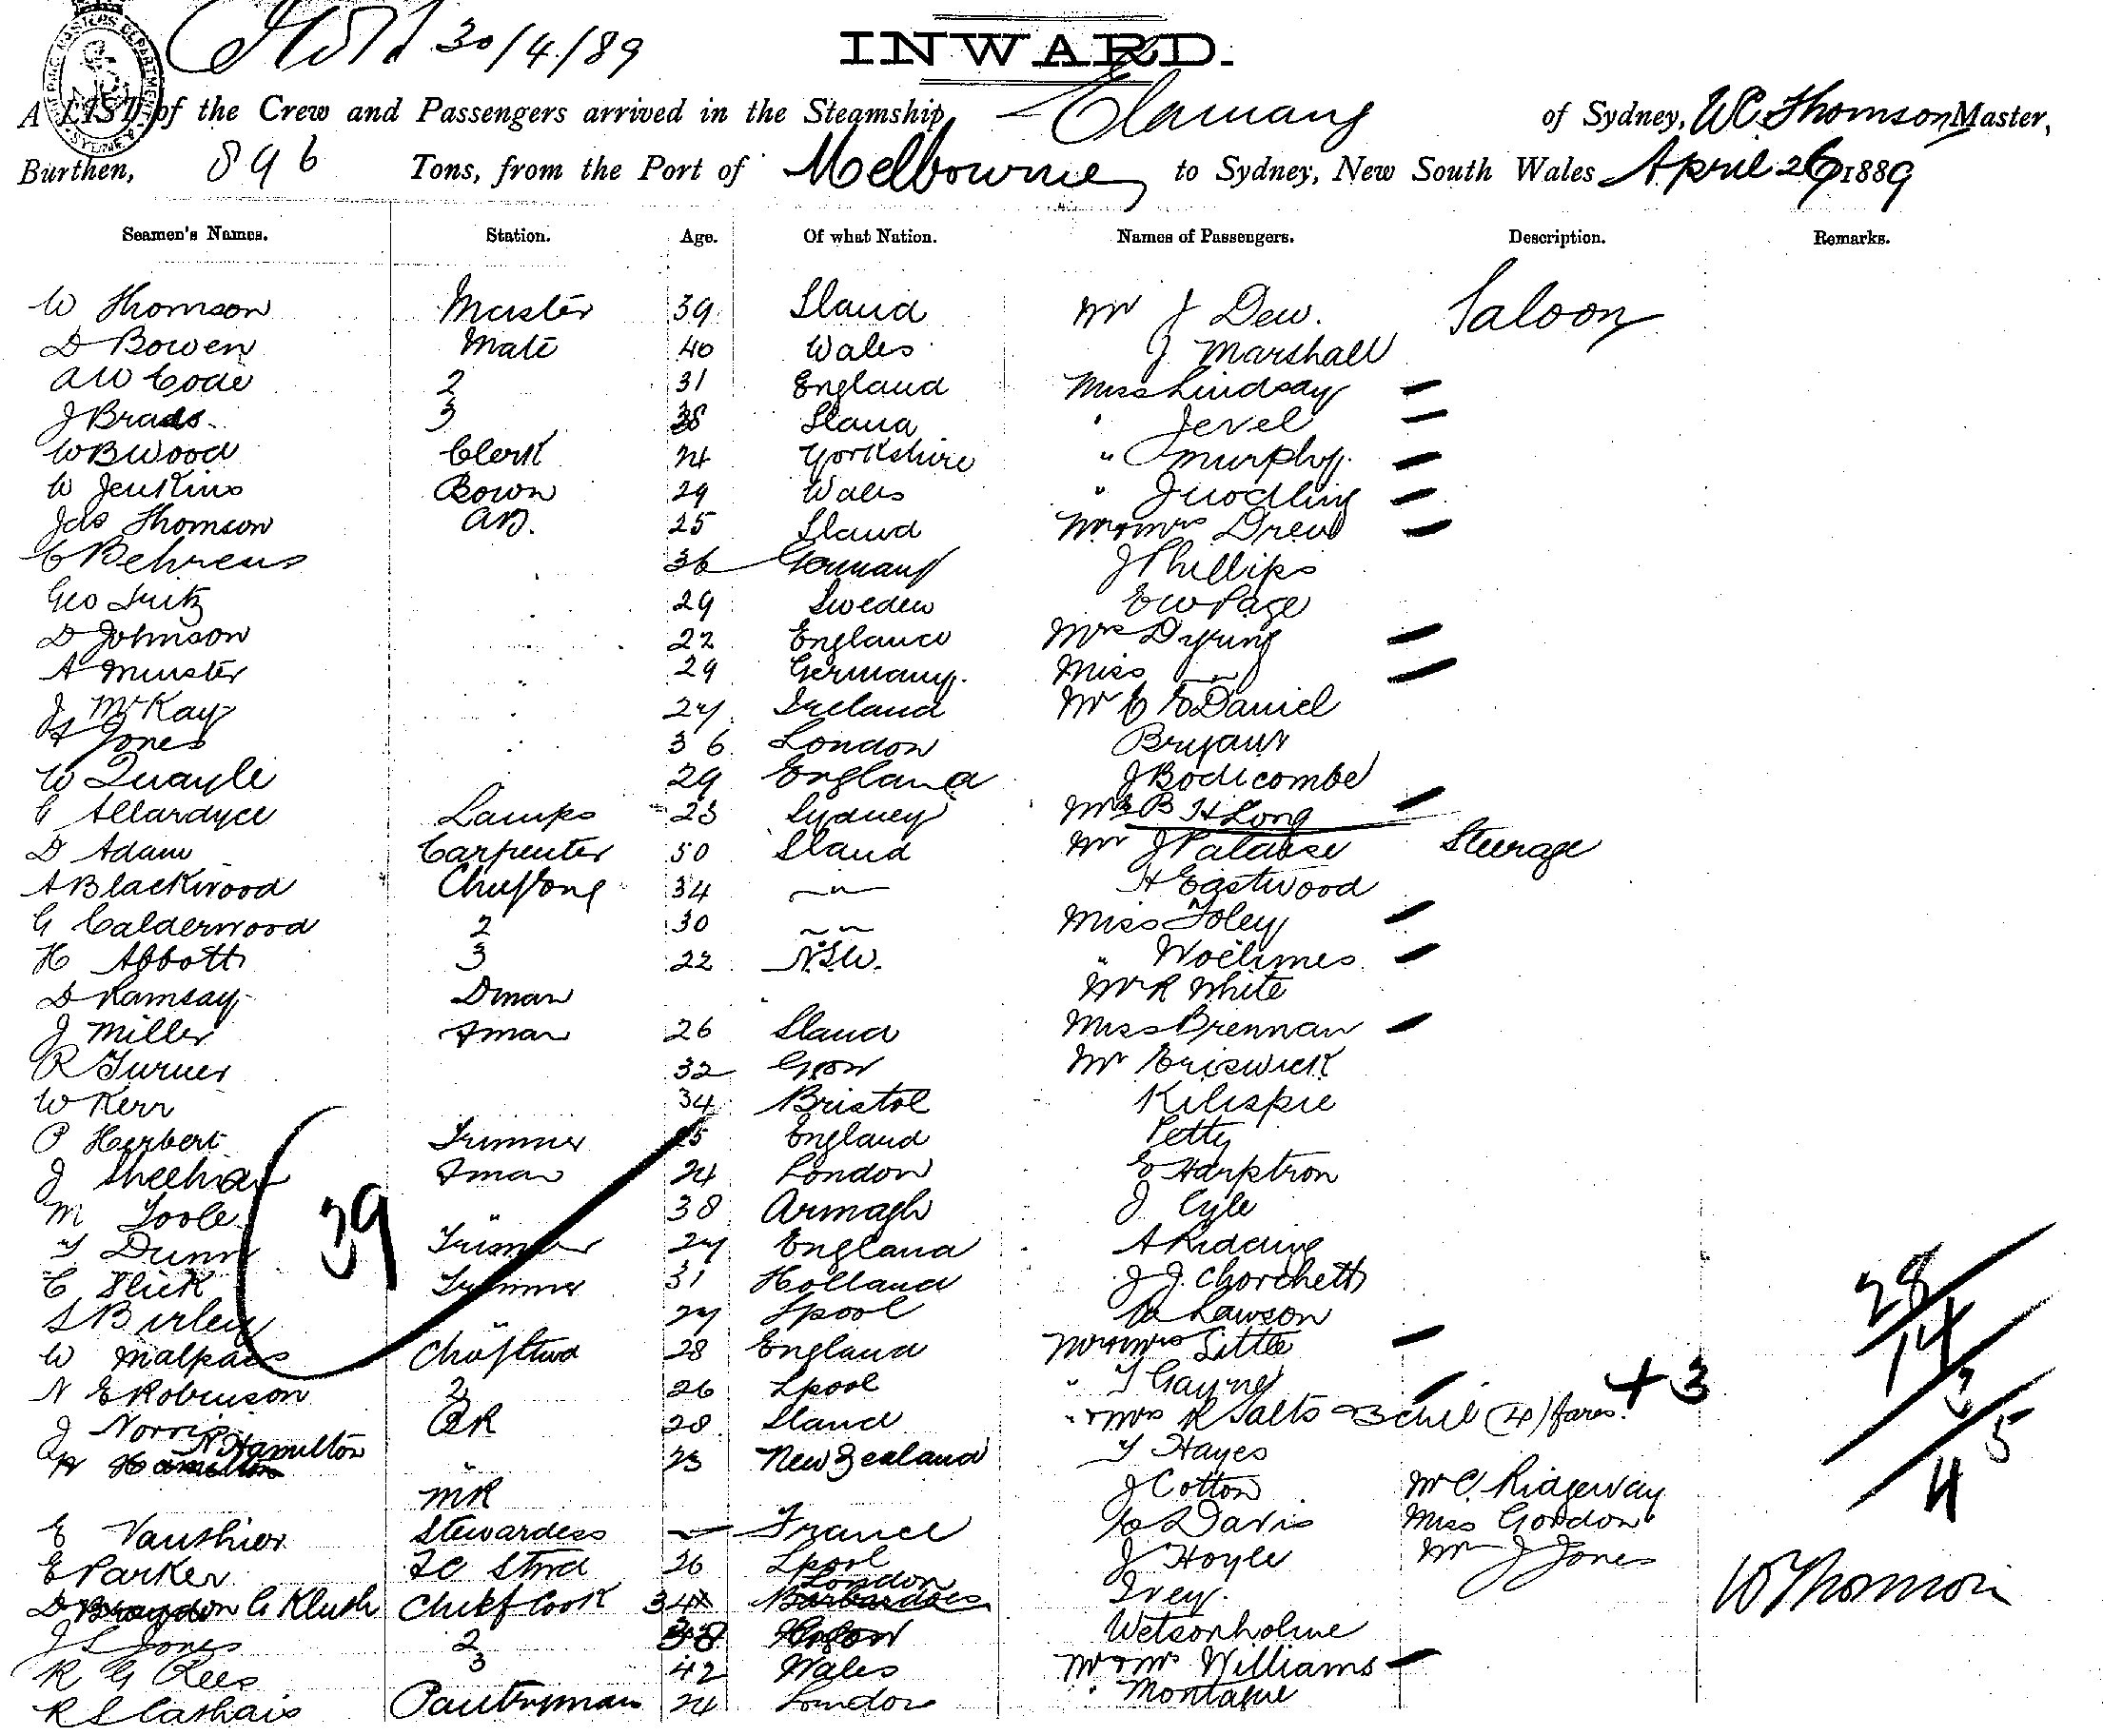 30/4/89
INWARD.
A LIST of the Crew and Passengers arrived in the Steamship Elamang of Sydney, WC Thomson Master,
Burthen, 896 Tons, from the Port of Melbourne to Sydney, New South Wales April 26 1889
Seamen's Names. Station. Age. Of what Nation. Names of Passengers. Description. Remarks.
W Thomson Master 39 Sland Mr J Dew. Saloon
D Bowen Mate 40 Wales J Marshall
AW Code 2 31 England Miss Lindsay
J Brads 3 38 Sland " Jevel
WB Wood Clerk 24 Yorkshire " Murphy
W Jenkins Bosun 29 Wales " Juodling
Jas Thomson AB. 25 Sland Mr & Mrs Drew
C Behrens 36 Germany J Phillips
Geo 29 Sweden EW Page
D Johnson 22 England Mrs Dyring
A Munster 29 Germany. Miss "
J McKay 27 Ireland Mr C E Daniel
Jones 36 London Bryant
W Quayle 29 England J Bodicombe
G Allardyce Lamps 23 Sydney Mrs B H Long
D Adam Carpenter 50 Sland Mr J Steerage
A Blackwood Chief Eng 34 " H Eastwood
G Calderwood 2 30 " Miss Foley
H Abbott 3 22 N.S.W. "
D Ramsay Dman Mr R White
J Miller Fman 26 Sland Miss Brennan
R Turner 32 Gow Mr Criswick
W Kerr 34 Bristol Kilispie
P Herbert Trimmer 25 England Petty
J Sheehan Fman 24 London E Harptron
M Toole " 38 Armagh J Cyle
T Dunn Trimmer 27 England A Ridding
C Slick Trimmer 31 Holland J J Chorchett
S Birley " 27 Lpool W Lawson
W Malpass Chief Stwd 28 England Mr & Mrs Little
N E Robinson 2 26 Lpool " T Gayner
J Norris 28 Sland " & Mrs R Salts & 3 chil (4) fares. +3
N Hamilton " 23 New Zealand T Hayes
MR J Cotton Mr C Ridgeway
E Vauthier Stewardess France Davis Miss Gordon
E Parker 2C Stwd 26 Lpool J Hoyle Mr J Jones
G Klush Chief Cook 34 London Ivey.
J L Jones 2 38 Wetsonholme
R G Rees 3 42 Wales Mr & Mrs Williams
Pantryman 24 London " Montague
39
28
14
3
5
4
W Thomson